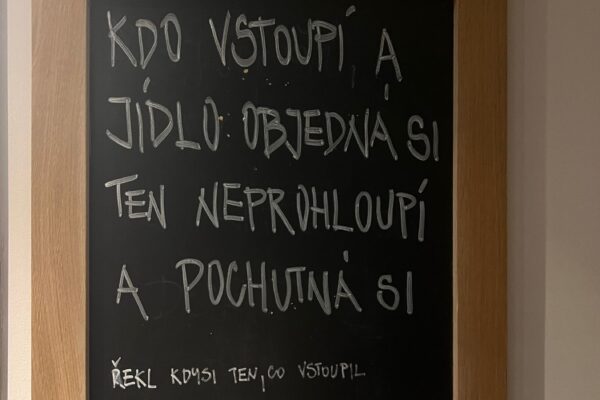 KDO VSTOUPÍ, A
JÍDLO OBJEDNÁ SI
TEN NEPROHLOUPÍ
A POCHUTNÁ SI
ŘEKL KDYSI TEN, CO VSTOUPIL